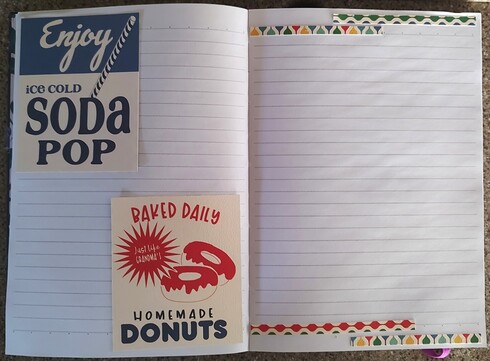 Enjoy
ice COLD
SODa
POP
BAKED DAILY
Just Like
GRANDMA'S!
HOMEMADE
DONUTS